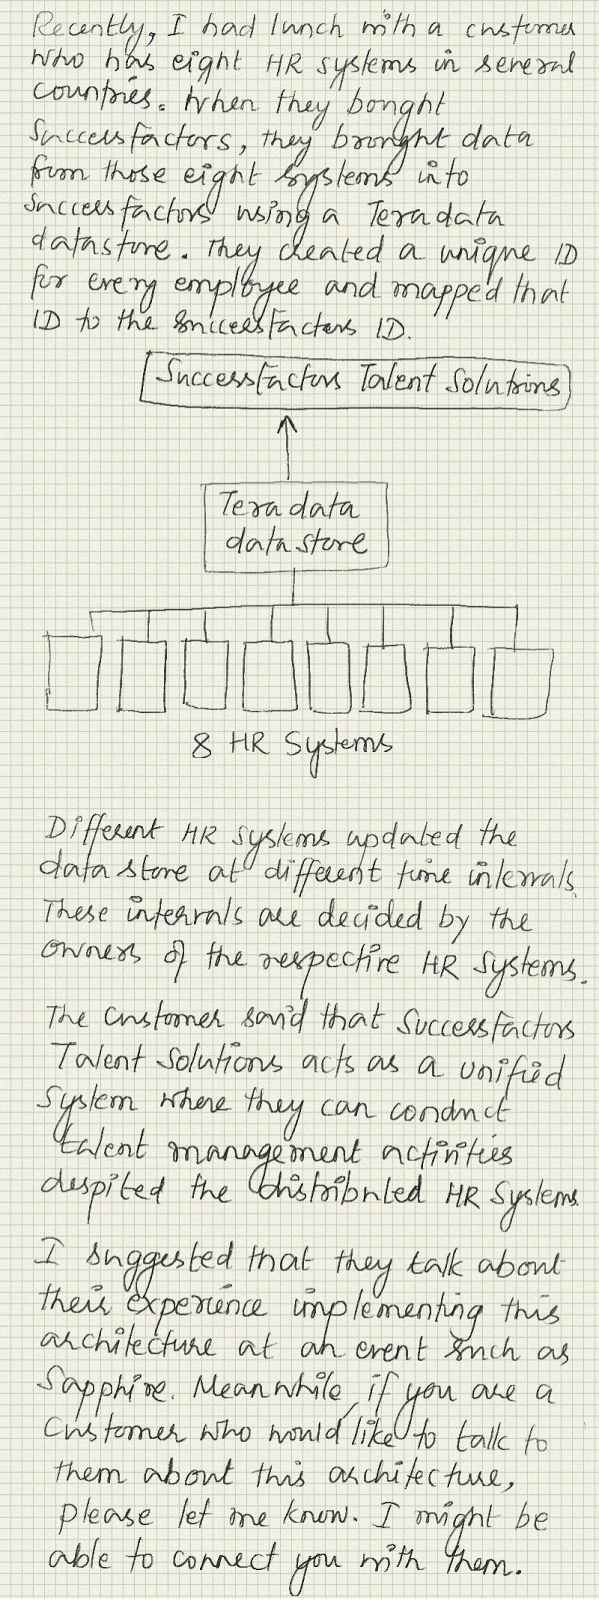 Recently, I had lunch with a customer
who has eight HR systems in several
countries. When they bought
SuccessFactors, they brought data
from those eight systems into
SuccessFactors using a Teradata
datastore. They created a unique ID
for every employee and mapped that
ID to the SuccessFactors ID.
SuccessFactors Talent Solutions
Teradata
datastore
8 HR Systems
Different HR systems updated the
data store at different time intervals.
These intervals are decided by the
owners of the respective HR Systems.
The customer said that SuccessFactors
Talent Solutions acts as a unified
system where they can conduct
talent management activities
despited the distributed HR Systems.
I suggested that they talk about
their experience implementing this
architecture at an event such as
Sapphire. Meanwhile, if you are a
customer who would like to talk to
them about this architecture,
please let me know. I might be
able to connect you with them.